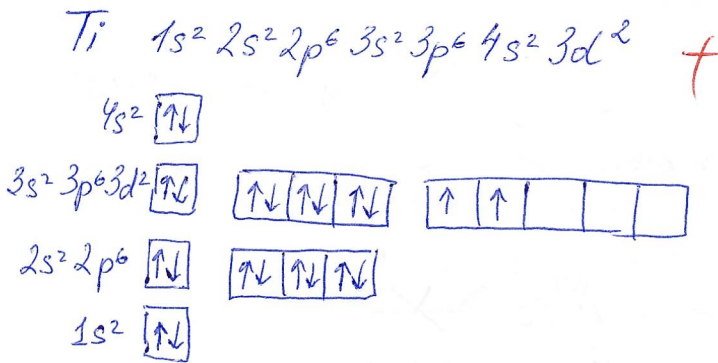 Ti 1s² 2s² 2p⁶ 3s² 3p⁶ 4s² 3d² +
4s² ↑↓
3s² 3p⁶ 3d² ↑↓ ↑↓ ↑↓ ↑↓ ↑ ↑
2s² 2p⁶ ↑↓ ↑↓ ↑↓ ↑↓
1s² ↑↓